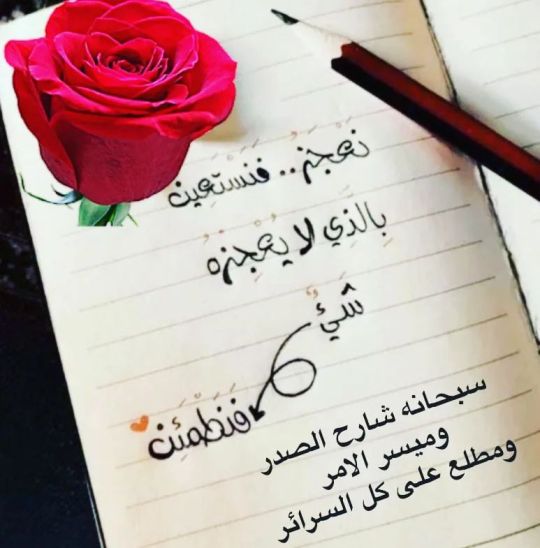 نَعجَز.. فَنَسْتَعِين
بِالَّذِي لا يُعْجِزه
شَيْءٌ
فَنَطْمَئِن
سبحانه شارح الصدر
وميسر الامر
ومطلع على كل السرائر